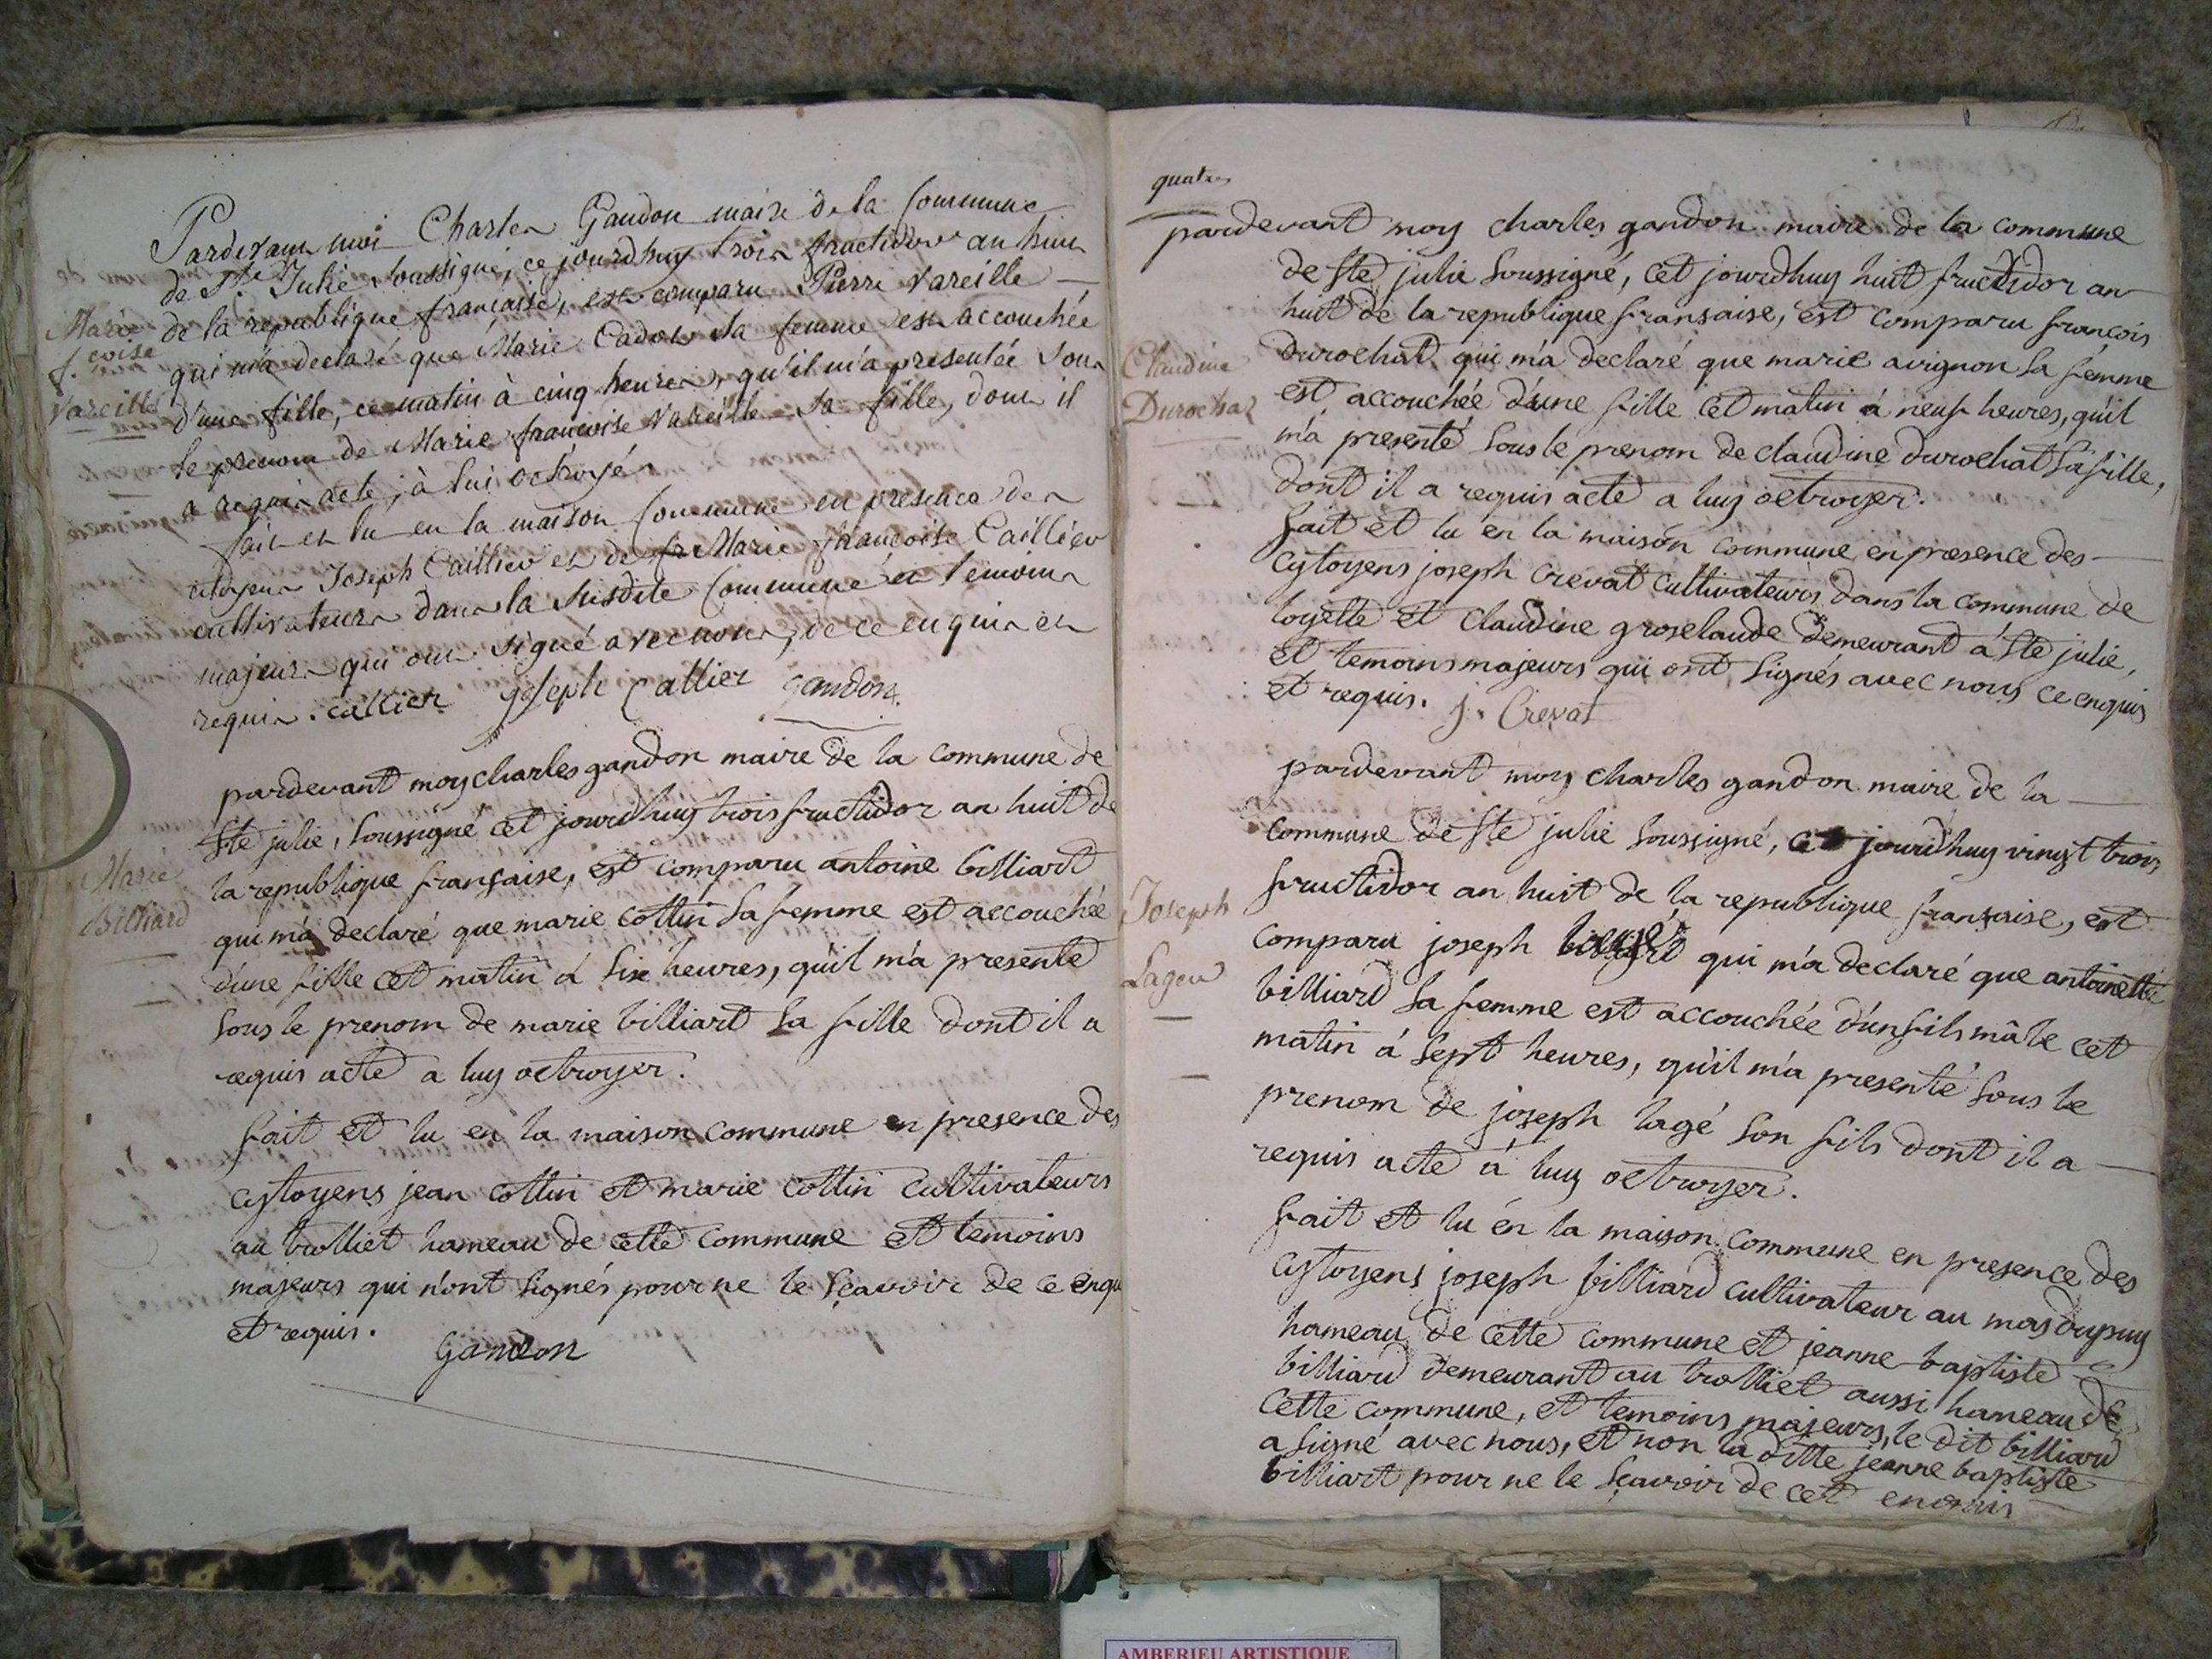 Pardevant moi Charles Gandon maire de la Commune
de Ste Julie soussigné, ce jourd'huy trois fructidor an huit
de la republique française, est comparu Pierre Vareille
qui m'a declaré que Marie Cadot sa femme est accouchée
d'une fille, ce matin à cinq heures, qu'il m'a presentée sous
le prenom de Marie françoise Vareille sa fille, dont il
a requis acte, à lui octroyé
fait et lu en la maison Commune en presence des
citoyens Joseph Caillier et de Marie françoise Caillier
cultivateurs dans la susdite Commune et temoins
majeurs qui ont signé avec nous, de ce enquis et
requis. callier joseph Callier gandon.
Marie
f.coise
Vareille
pardevant moy charles gandon maire de la commune de
Ste julie, soussigné cet jourdhuy trois fructidor an huit de
la republique française, est comparu antoine billiart
qui m'a declaré que marie cottin sa femme est accouchée
d'une fille cet matin á six heures, qu'il m'a presenté
sous le prenom de marie billiart sa fille dont il a
requis acte a luy octroyer.
fait et lu en la maison commune en presence des
cytoyens jean cottin et marie cottin cultivateurs
au trolliet hameau de cette commune et temoins
majeurs qui n'ont signés pour ne le sçavoir de ce enqu
et requis.
Gandon
Marie
Billiard
quatre
pardevant moy charles gandon maire de la commune
de Ste julie soussigné, cet jourdhuy huit fructidor an
huit de la republique fransaise, est comparu francois
durochat qui m'a declaré que marie avignon sa femme
est accouchée d'une fille cet matin á neuf heures, qu'il
m'a presenté sous le prenom de claudine durochat sa fille,
dont il a requis acte a luy octroyer.
fait et lu en la maison commune en presence des
cytoyens joseph crevat cultivateurs dans la commune de
loyette et Claudine groselaude demeurant á Ste julie,
et temoins majeurs qui ont signés avec nous ce enquis
et requis. j. Crevat
Claudine
Durochat
pardevant moy charles gandon maire de la
commune de Ste julie soussigné, ce jourdhuy vingt trois
fructidor an huit de la republique fransaise, est
comparu joseph qui m'a declaré que antoinette
billiard sa femme est accouchée d'un fils mâle cet
matin á sept heures, qu'il m'a presenté sous le
prenom de joseph lagé son fils dont il a
requis acte á luy octroyer.
fait et lu én la maison commune en presence des
cytoyens joseph billiard cultivateur au mas dupuy
hameau de cette commune et jeanne baptiste
billiard demeurant au trolliet aussi hameau de
cette commune, et temoins majeurs, le dit billiard
a signé avec nous, et non la ditte jeanne baptiste
billiart pour ne le sçavoir de cet enquis
Joseph
Lageu
AMBERIEU ARTISTIQUE